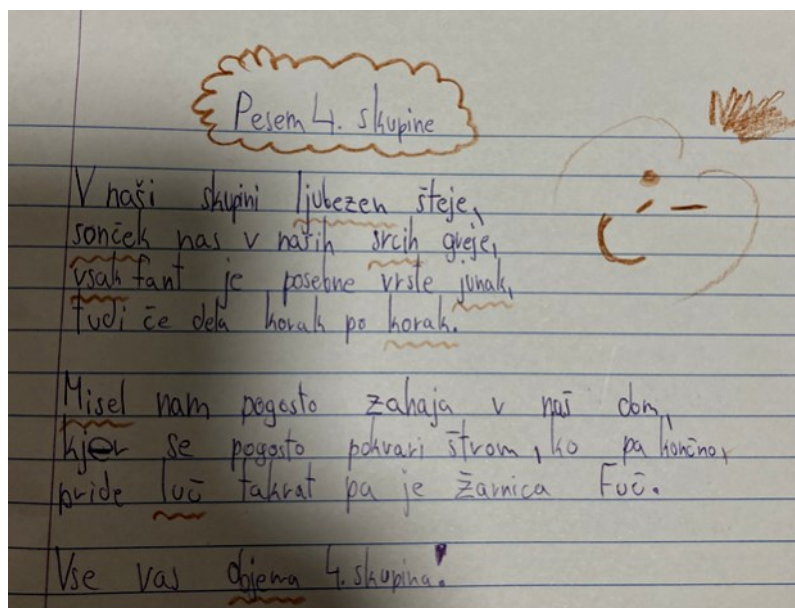 Pesem 4. skupine
V naši skupini ljubezen šteje,
sonček nas v naših srcih greje,
vsak fant je posebne vrste junak,
tudi če dela korak po korak.
Misel nam pogosto zahaja v naš dom,
kjer se pogosto pokvari štrom, ko pa končno,
pride luč takrat pa je žarnica Fuč.
Vse vas objema 4. skupina!